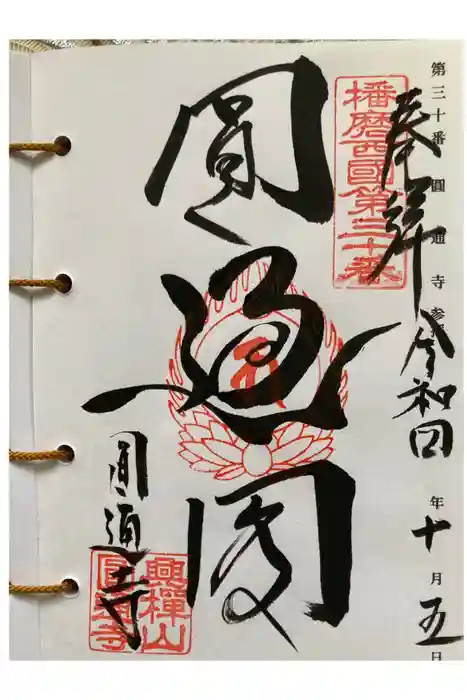 第三十番 圓通寺参拝
奉拝 令和四年十月五日
播磨西國第三十番
圓通閣
圓通寺
興禪山
圓通寺